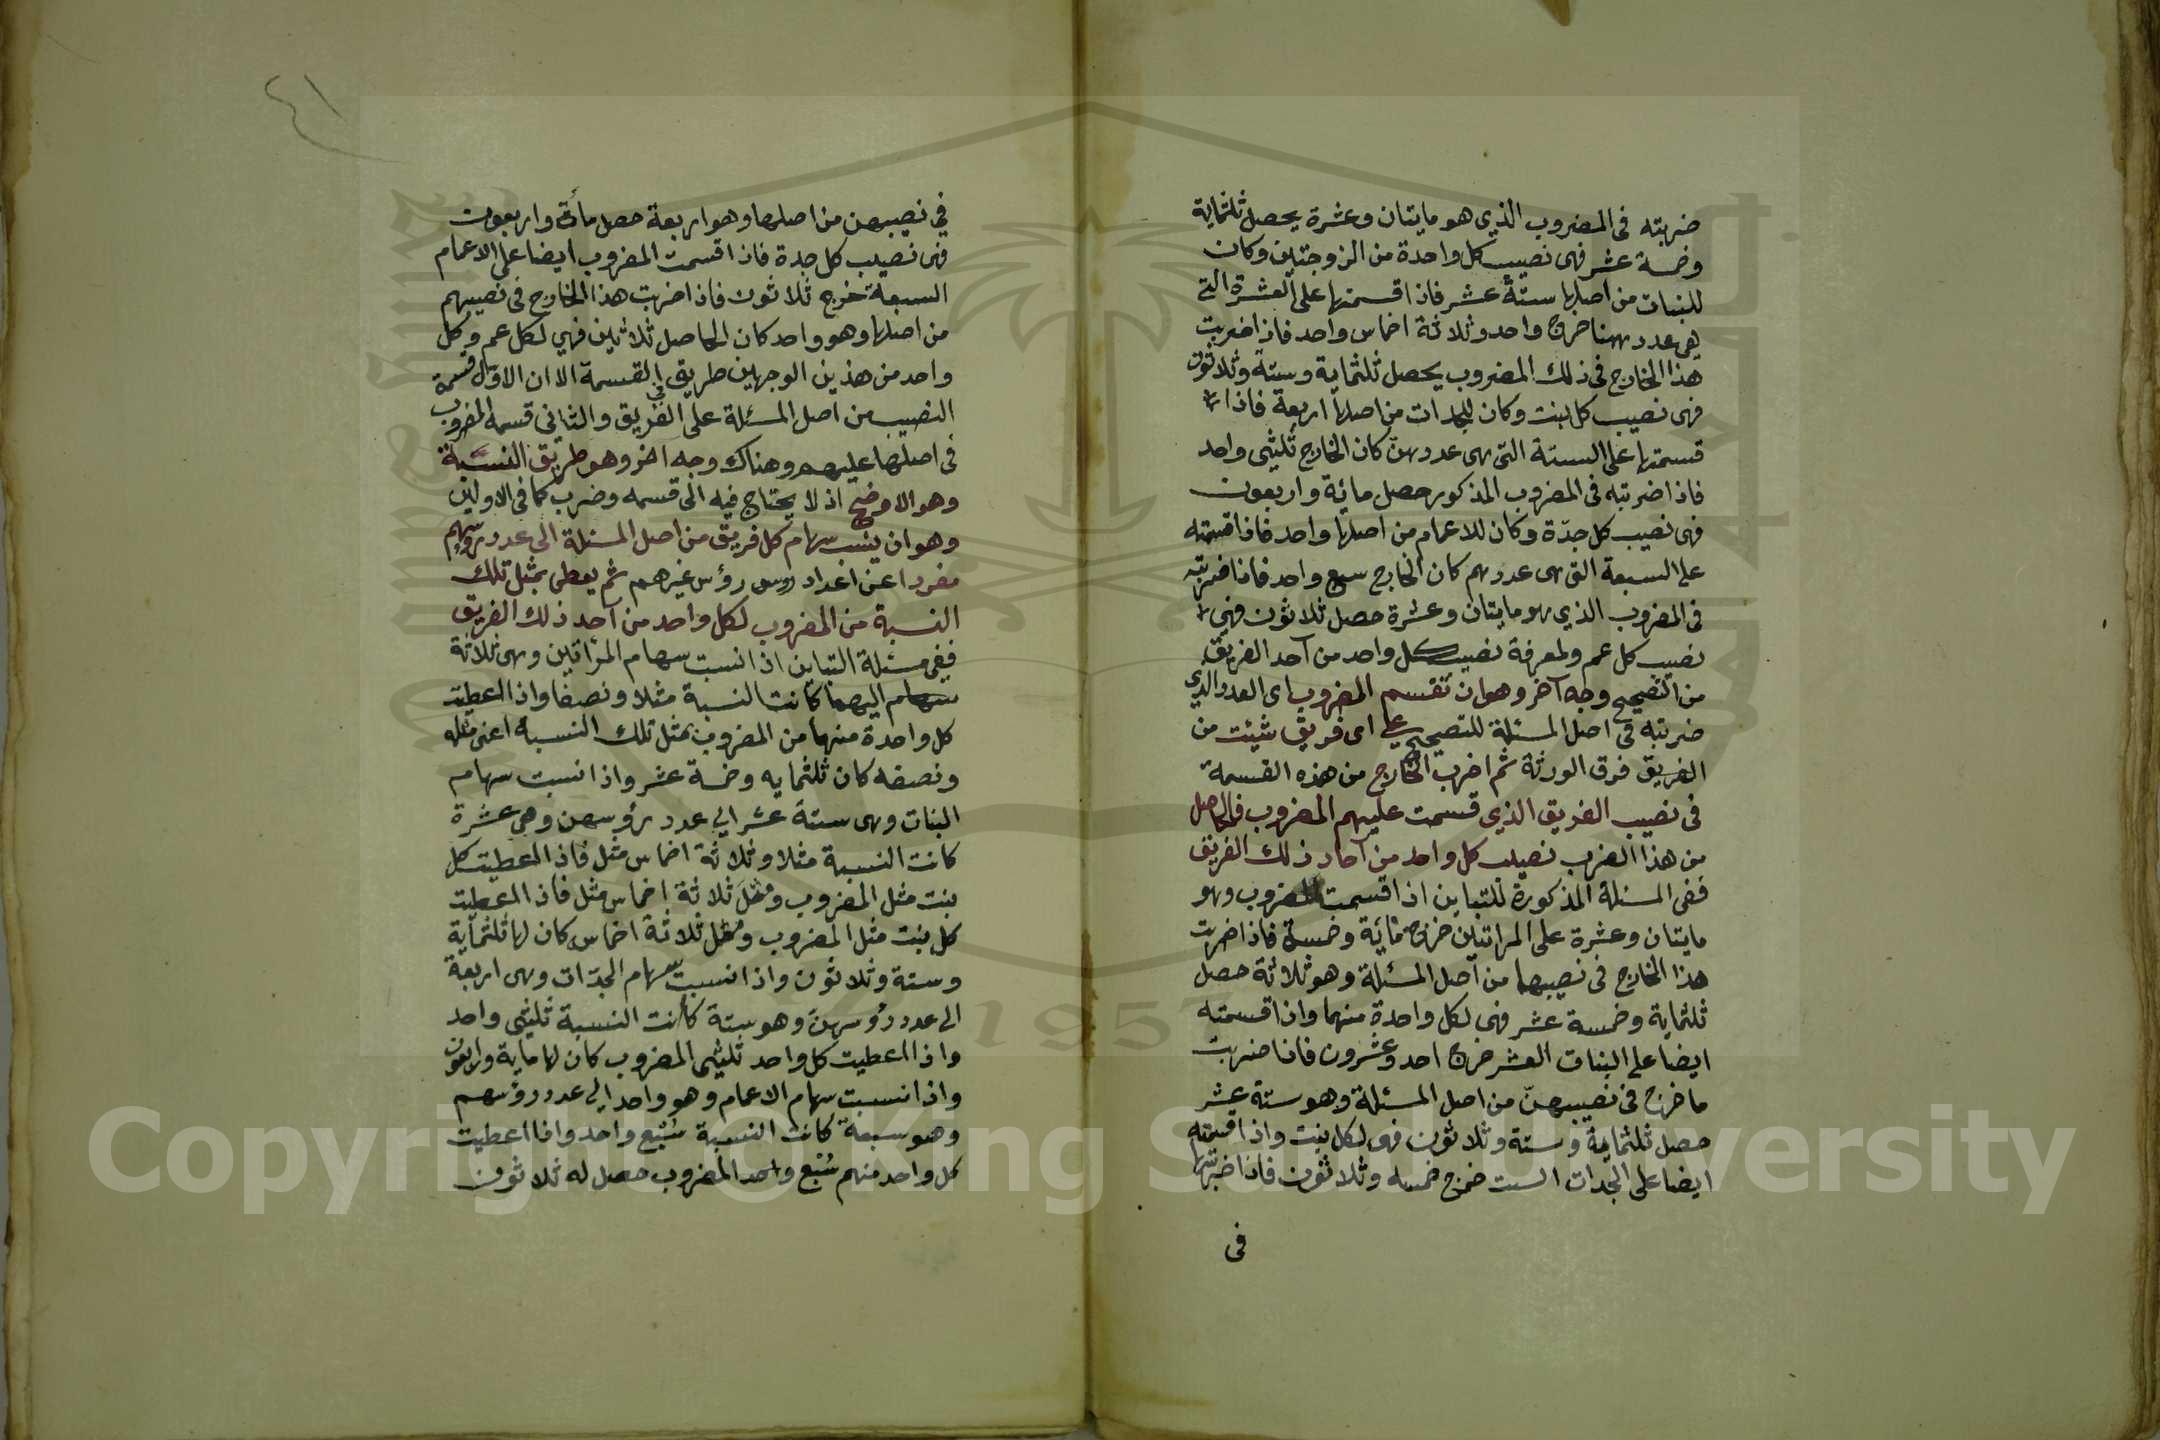 ضربته فى المضروب الذي هو مايتان وعشرة يحصل ثلثماية
وخمسة عشر فهى نصيب كل واحدة من الزوجتين وكان
للبنات من اصلها ستة عشر فاذا قسمتها على العشرة التى
هى عددهن خرج واحد وثلاثة اخماس واحد فاذا ضربت
هذا الخارج فى ذلك المضروب يحصل ثلثماية وستة وثلاثون
فهى نصيب كل بنت وكان للجدات من اصلها اربعة فاذا
قسمتها على الستة التى هى عددهن كان الخارج ثلثى واحد
فاذا ضربته فى المضروب المذكور حصل مائة واربعون
فهى نصيب كل جدّة وكان للاعمام من اصلها واحد فاذا قسمته
على السبعة التى هى عددهم كان الخارج سبع واحد فاذا ضربته
فى المضروب الذي هو مايتان وعشرة حصل ثلاثون فهى
نصيب كل عم ولمعرفة نصيب كل واحد من آحد الفريق
من التصحيح وجه آخر وهو ان تقسم المضروب اى العدد الذي
ضربته فى اصل المسئلة للتصحيح على اى فريق شيئت من
الفريق فرق الورثة ثم اضرب الخارج من هذه القسمة
فى نصيب الفريق الذي قسمت عليهم المضروب فالحاصل
من هذا الضرب نصيب كل واحد من آحاد ذلك الفريق
ففى المسئلة المذكورة للتباين اذا قسمت المضروب وهو
مايتان وعشرة على المراتين خرج مائة وخمسة فاذا ضربت
هذا الخارج فى نصيبهما من اصل المسئلة وهو ثلاثة حصل
ثلثماية وخمسة عشر فهى لكل واحدة منهما واذا قسمته
ايضا على البنات العشر خرج احد وعشرون فاذا ضربت
ما خرج فى نصيبهنّ من اصل المسئلة وهو ستة عشر
حصل ثلثماية وستة وثلاثون فهى لكل بنت واذا قسمته
ايضا على الجدات الست خرج خمسه وثلاثون فاذا ضربتها
فى
٤١
في نصيبهن من اصلها وهو اربعة حصل مأة واربعون
فهى نصيب كل جدة فاذا قسمت المضروب ايضا على الاعمام
السبعة خرج ثلاثون فاذا ضربت هذا الخارج فى نصيبهم
من اصلها وهو واحد كان الحاصل ثلاثين فهي لكل عم وكل
واحد من هذين الوجهين طريق القسمة الا ان الاول قسمة
النصيب من اصل المسئلة على الفريق والثانى قسمه المضروب
فى اصلها عليهم وهناك وجه اخر وهو طريق النسبة
وهو الاوضح اذ لا يحتاج فيه الى قسمه وضرب كما فى الاولين
وهو ان ينسب سهام كل فريق من اصل المسئلة الى عدد رؤسهم
مفردا عن اعداد روس رؤس غيرهم ثم يعطى بمثل تلك
النسبة من المضروب لكل واحد من آحد ذلك الفريق
ففى مسئلة التباين اذا نسبت سهام المراتين وهى ثلاثة
سهام اليهما كانت النسبة مثلا ونصفا واذا اعطيت
كل واحدة منهما من المضروب بمثل تلك النسبة اعنى مثله
ونصفه كان ثلثمايه وخمسة عشر واذا نسبت سهام
البنات وهى ستة عشر الي عدد رؤسهن وهي عشرة
كانت النسبة مثلا وثلاثة اخماس مثل فاذا اعطيت كل
بنت مثل المضروب ومثل ثلاثة اخماس مثل فاذا اعطيت
كل بنت مثل المضروب ومثل ثلاثة اخماس كان لها ثلثماية
وستة وثلاثون واذا نسبت سهام الجدّات وهى اربعة
الى عدد رؤسهن وهو ستة كانت النسبة ثلثى واحد
واذا اعطيت كل واحد ثلثى المضروب كان لها ماية واربعون
واذا نسبت سهام الاعمام وهو واحد الي عدد رؤسهم
وهو سبعة كانت النسبة سُبُع واحد واذا اعطيت
كل واحد منهم سُبُع واحد المضروب حصل له ثلاثون
Copyright © King Saud University
1957